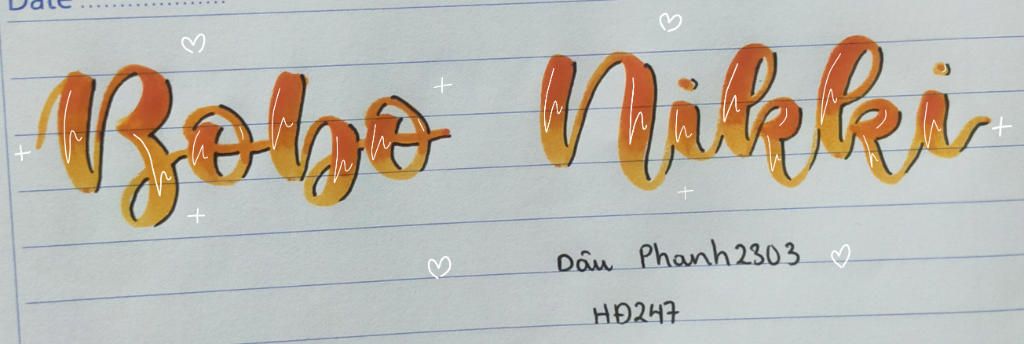 Date
Bobo Nikki
Dâu Phanh2303
HĐ247